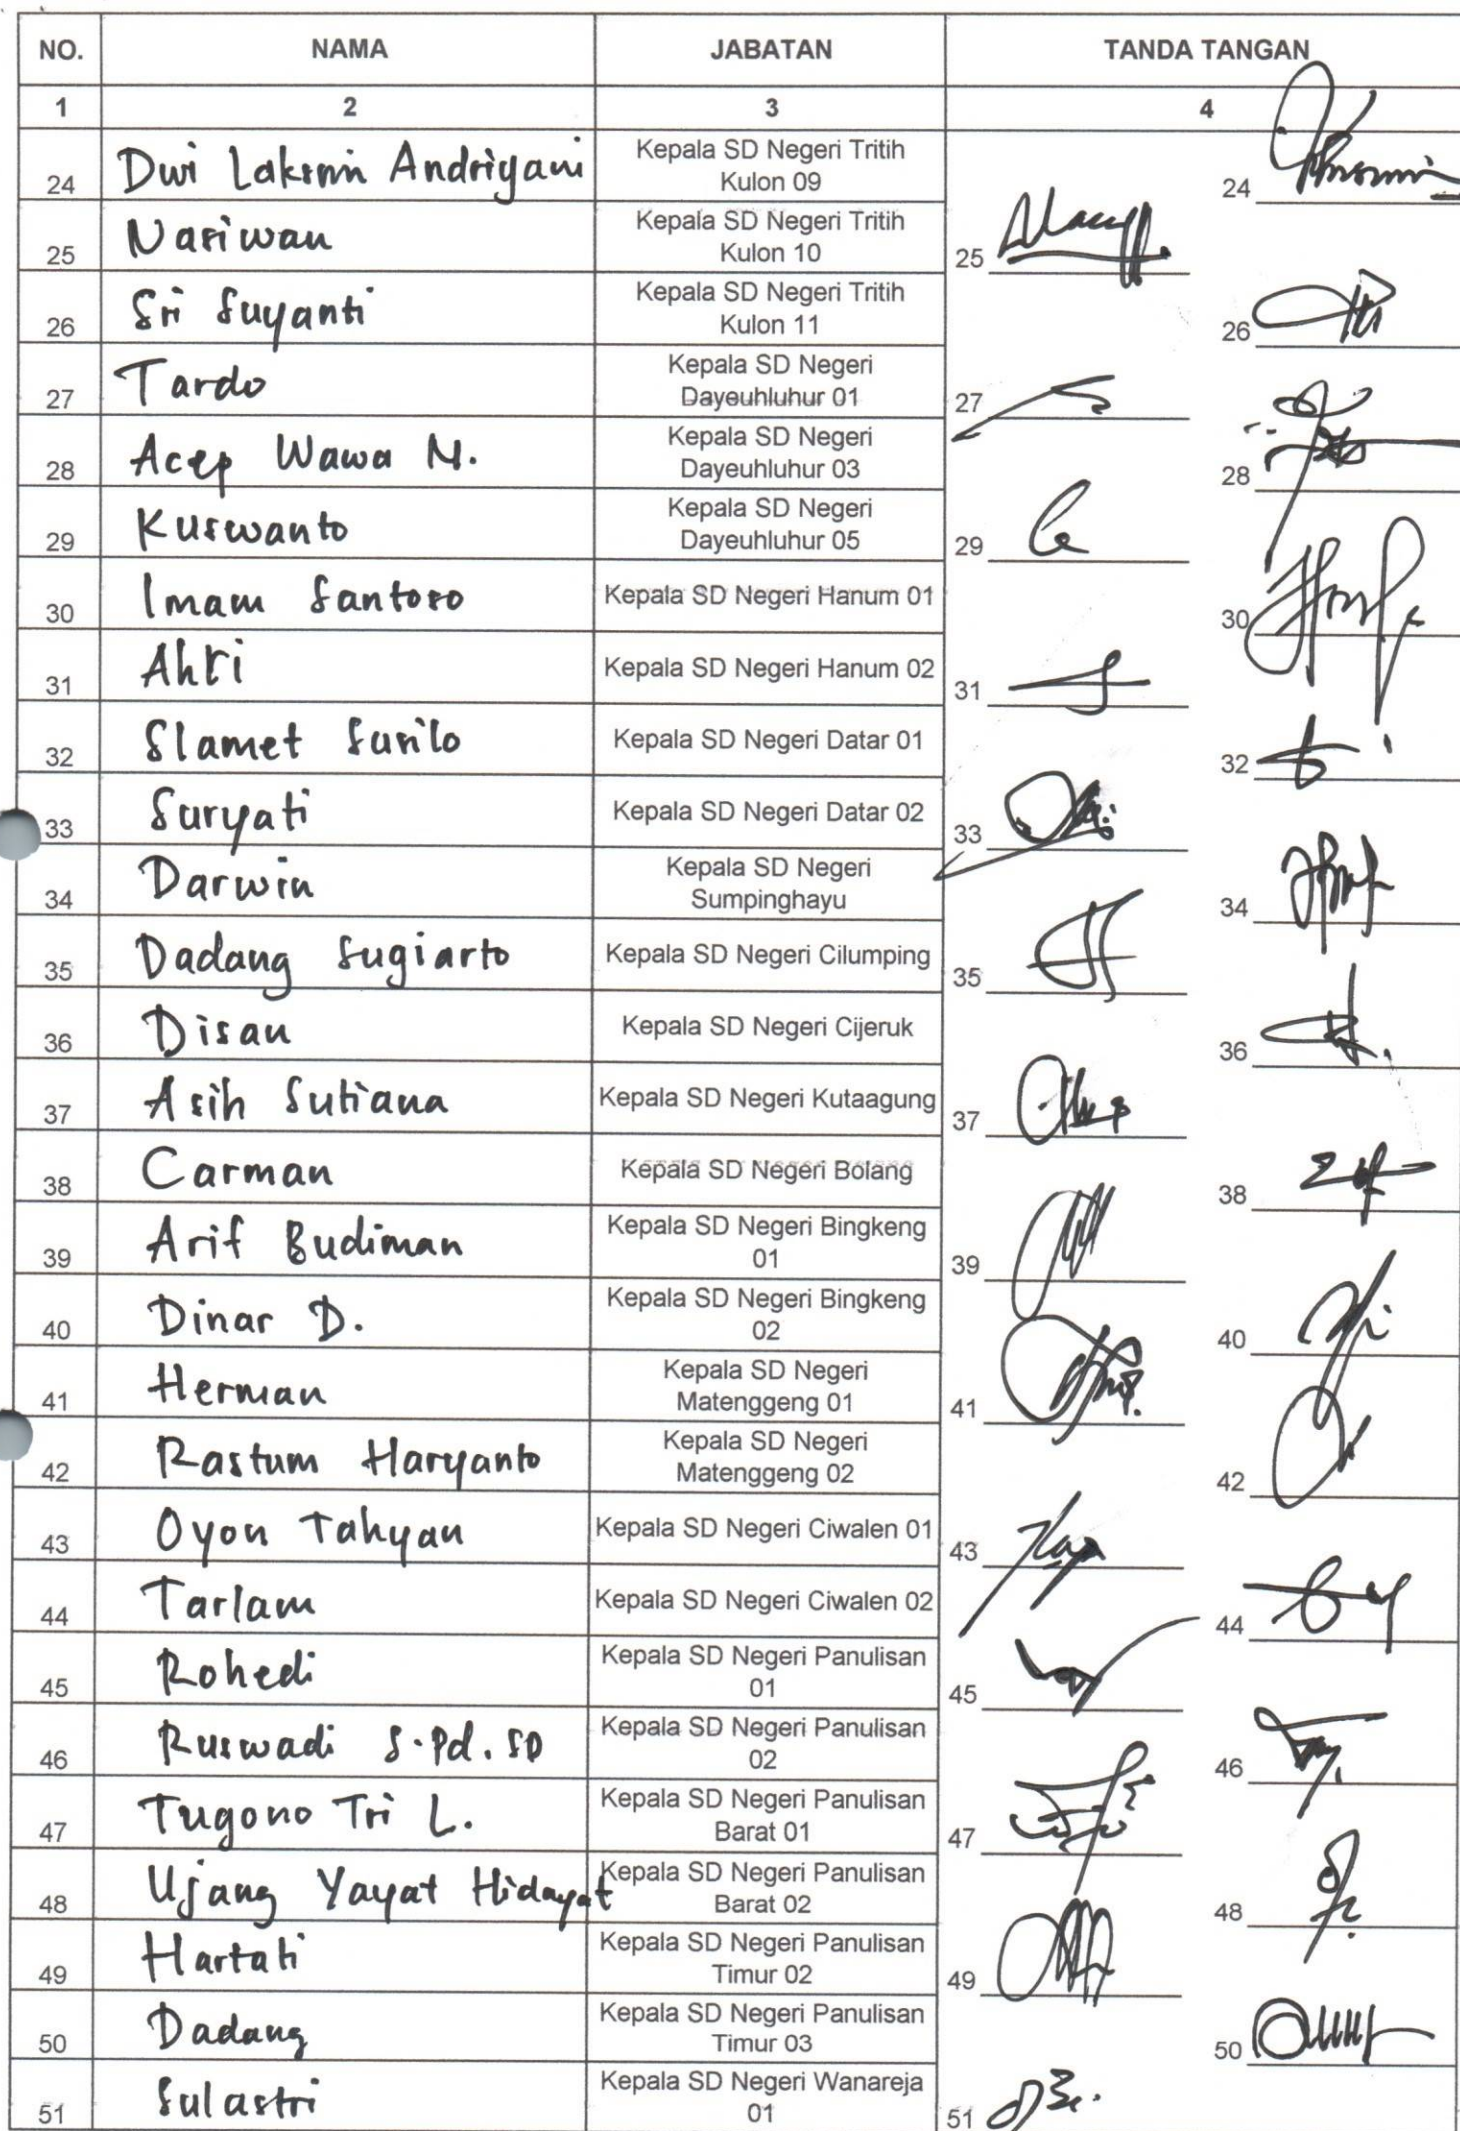 NO. NAMA JABATAN TANDA TANGAN
1 2 3 4
24 Dwi Laksmi Andriyani Kepala SD Negeri Tritih Kulon 09 24
25 Nasiwan Kepala SD Negeri Tritih Kulon 10 25
26 Sri Suyanti Kepala SD Negeri Tritih Kulon 11 26
27 Tardo Kepala SD Negeri Dayeuhluhur 01 27
28 Acep Wawa M. Kepala SD Negeri Dayeuhluhur 03 28
29 Kuswanto Kepala SD Negeri Dayeuhluhur 05 29
30 Imam Santoso Kepala SD Negeri Hanum 01 30
31 Kepala SD Negeri Hanum 02 31
32 Slamet Susilo Kepala SD Negeri Datar 01 32
33 Suryati Kepala SD Negeri Datar 02 33
34 Darwin Kepala SD Negeri Sumpinghayu 34
35 Dadang Sugiarto Kepala SD Negeri Cilumping 35
36 Disan Kepala SD Negeri Cijeruk 36
37 Asih Sutiana Kepala SD Negeri Kutaagung 37
38 Carman Kepala SD Negeri Bolang 38
39 Arif Budiman Kepala SD Negeri Bingkeng 01 39
40 Dinar D. Kepala SD Negeri Bingkeng 02 40
41 Herman Kepala SD Negeri Matenggeng 01 41
42 Rastum Haryanto Kepala SD Negeri Matenggeng 02 42
43 Oyon Tahyan Kepala SD Negeri Ciwalen 01 43
44 Tarlam Kepala SD Negeri Ciwalen 02 44
45 Rohedi Kepala SD Negeri Panulisan 01 45
46 Ruswadi S.Pd.SD Kepala SD Negeri Panulisan 02 46
47 Tugono Tri L. Kepala SD Negeri Panulisan Barat 01 47
48 Ujang Yayat Hidayat Kepala SD Negeri Panulisan Barat 02 48
49 Hartati Kepala SD Negeri Panulisan Timur 02 49
50 Dadang Kepala SD Negeri Panulisan Timur 03 50
51 Sulastri Kepala SD Negeri Wanareja 01 51